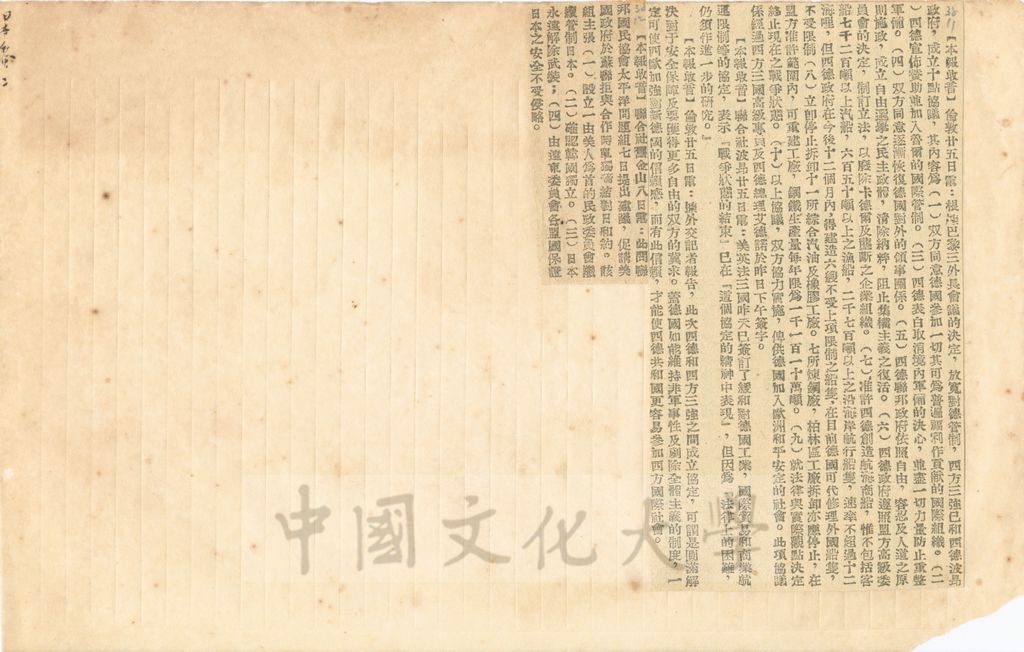 【本報收音】倫敦廿五日電：根據巴黎三外長會議的決定，放寬對德管制，西方三強已和西德波昂
政府，成立十點協議，其內容為（一）双方同意德國參加一切其可為普遍福利作貢獻的國際組織。（二
）西德宣佈贊助並加入魯爾的國際管制。（三）西德表白取消境內軍備的決心，並盡一切力量防止重整
軍備。（四）双方同意逐漸恢復德國對外的領事關係。（五）西德聯邦政府依照自由，容忍及人道之原
則施政，成立自由選擧之民主政體，清除納粹，阻止集權主義之復活。（六）西德政府遵照盟方高級委
員會的決定，制訂立法，以廢除卡德爾及壟斷之企業組織。（七）准許西德創造航海商船，惟不包括客
船七千二百噸以上汽船，六百五十噸以上之漁船，二千七百噸以上之沿海岸航行船隻，速率不超過十二
海哩，但西德政府在今後十二個月內，得建造六艘不受上項限制之船隻，在目前德國可代修理外國船隻，
不受限制（八）立卽停止拆卸十一所綜合汽油及橡膠工廠。七所煉鋼廠，柏林區工廠拆卸亦應停止，在
盟方准許範圍內，可重建工廠，鋼鐵生產量每年限為一千一百一十萬噸。（九）就法律與實際觀點決定
終止現在之戰爭狀態。（十）以上協議，双方協力實施，俾供德國加入歐洲和平安定的社會。此項協議
係經過西方三國高級專員及西德總理艾德諾於昨日下午簽字。
【本報收音】聯合社波昂廿五日電：美英法三國昨天已簽訂了緩和對德國工業，國際貿易和商業航
運限制等的協定，表示「戰爭狀態的結束」已在「這個協定的精神中表現」，但因為『法律上的困難，
仍須作進一步的研究。』
【本報收音】倫敦廿五日電：據外交記者報告，此次西德和西方三強之間成立協定，可謂是圓滿解
決對于安全保障及要獲得更多自由的双方的冀求。蓋德國如能維持非軍事性及剷除全體主義的制度，一
定可使西歐加強對新德國的信賴感，而有此信賴，才能使西德共和國更容易參加西方國際社會。
【本報收音】聯合社舊金山八日電：此間聯
邦國民協會太平洋問題組七日提出建議，促請美
國政府於蘇聯拒與合作時單獨締結對日和約。該
組主張（一）設立一由美人為首的民政委員會繼
續管制日本。（二）確認韓國獨立。（三）日本
永遠解除武裝；（四）由遠東委員會各盟國保證
日本之安全不受侵略。
日本
中國文化大學